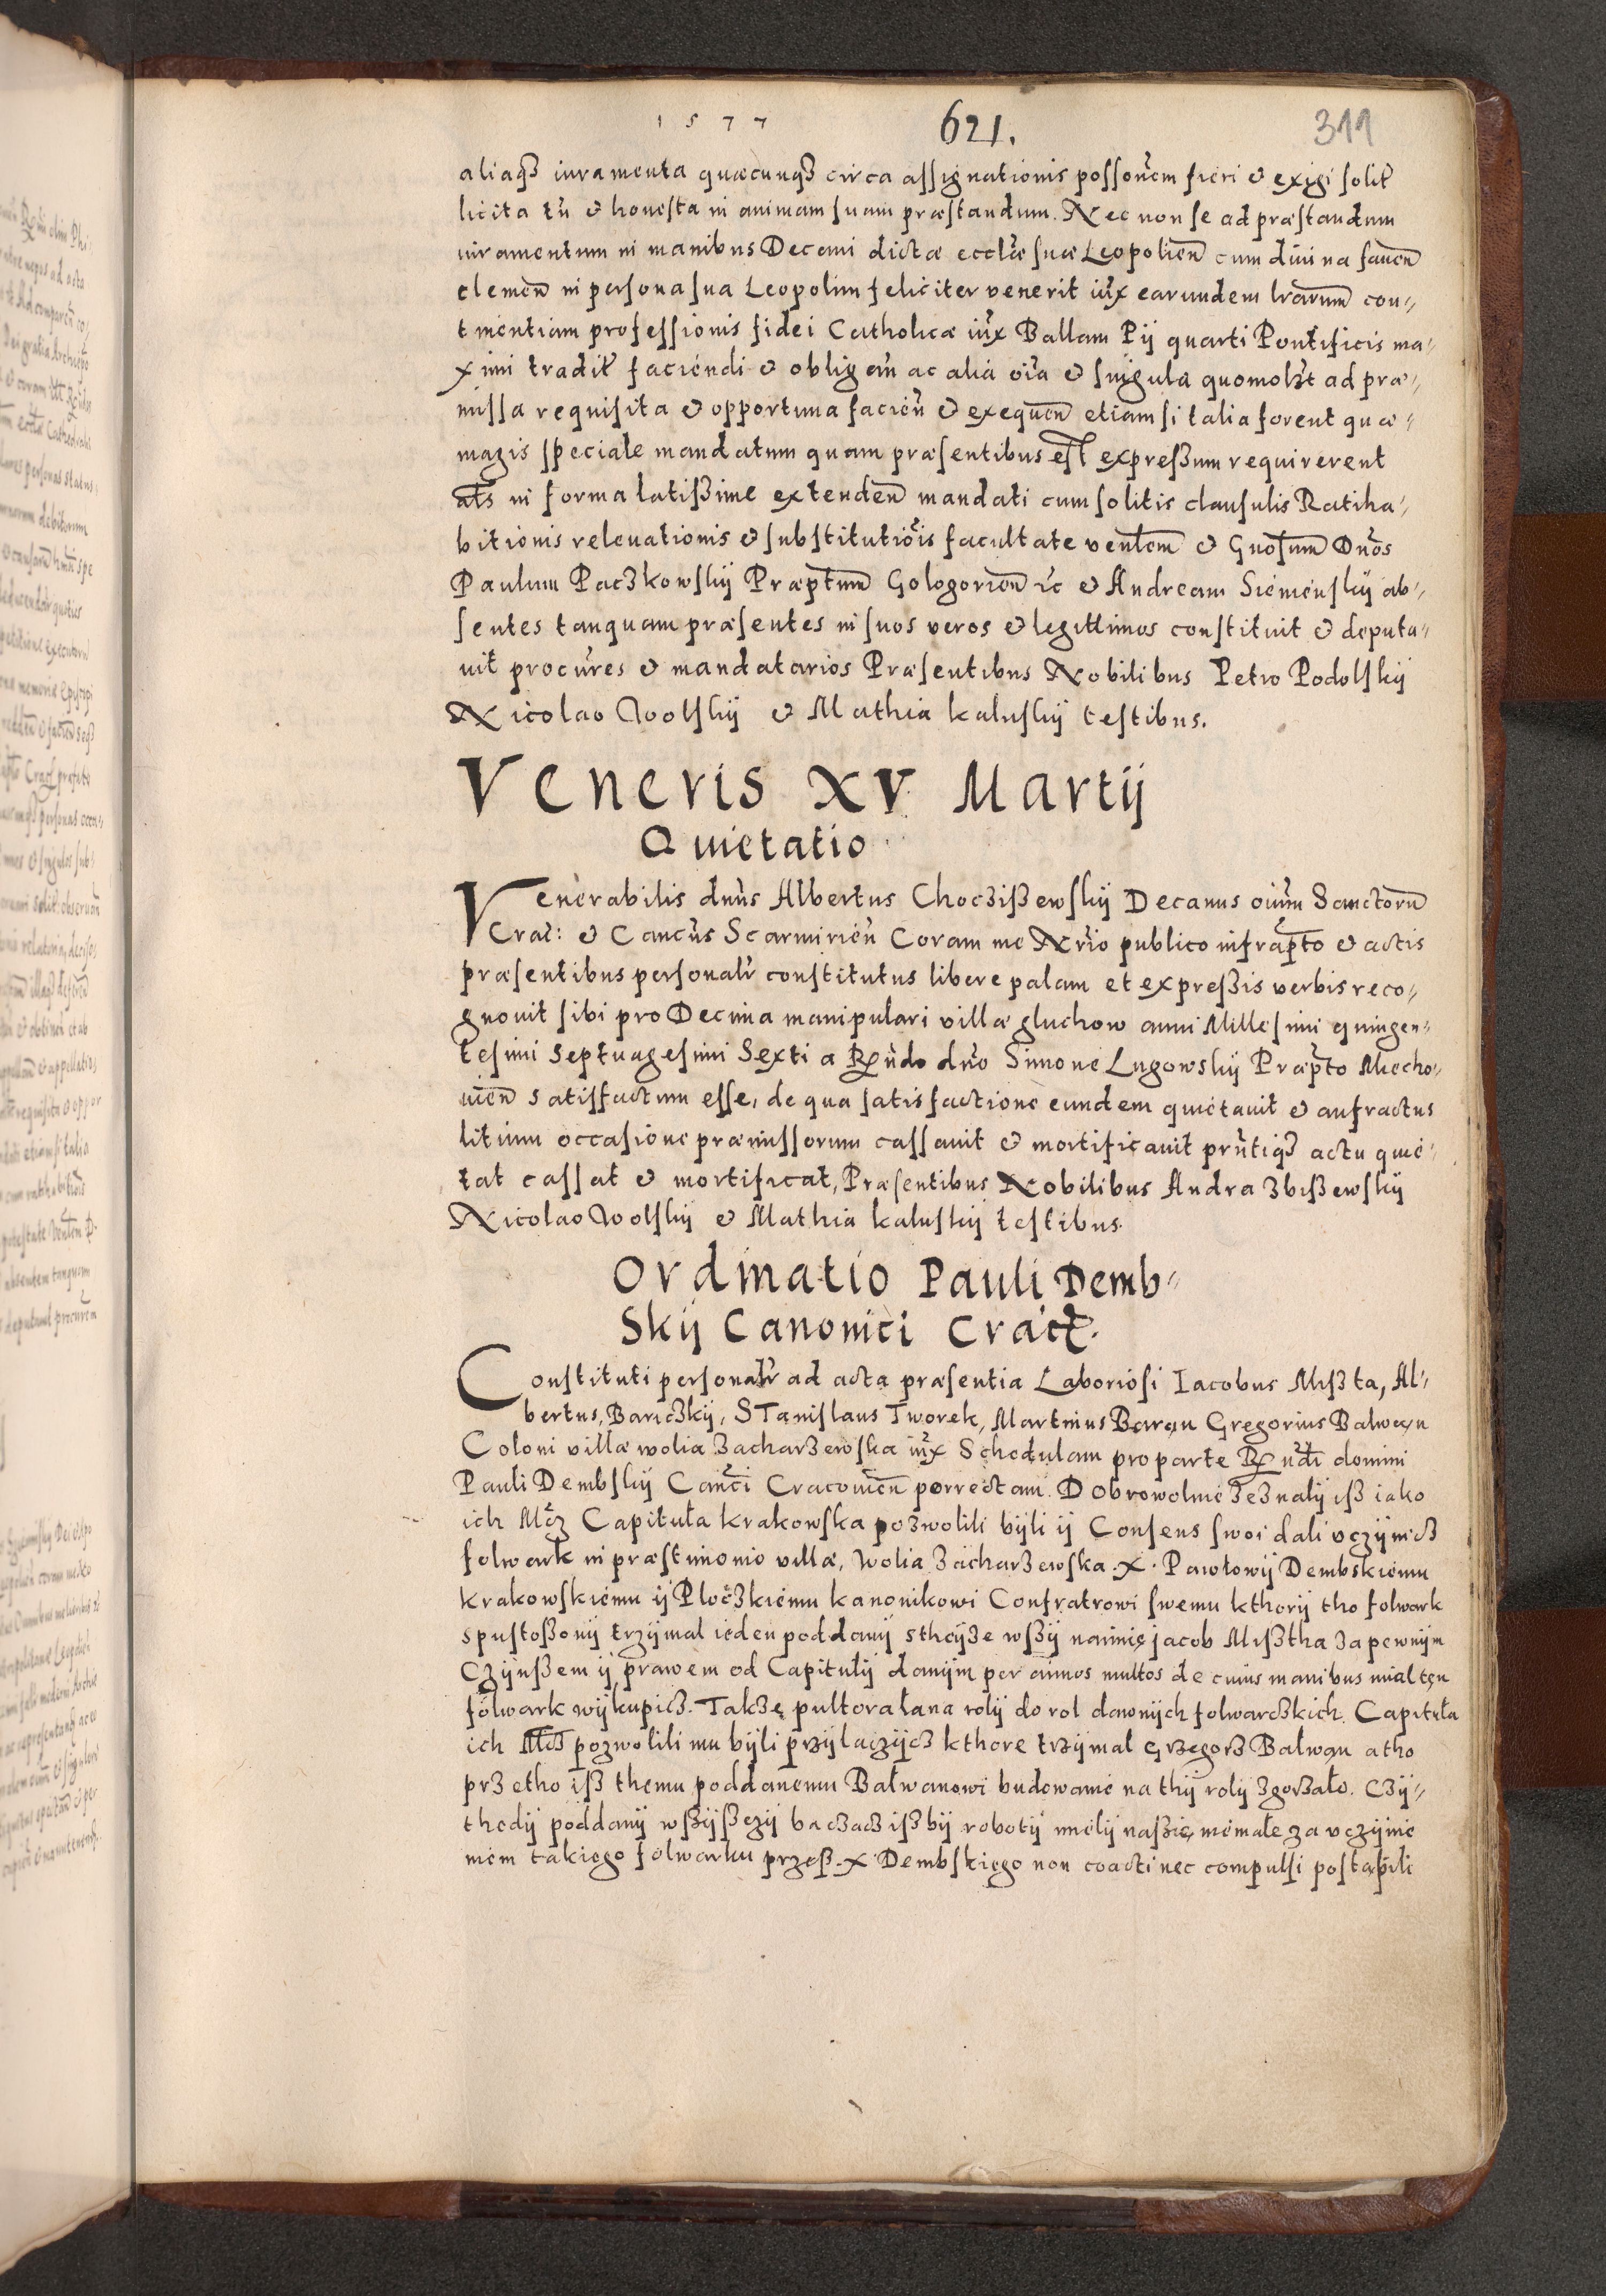 1577 621. 311
aliaqꝫ iuramenta quæcunqꝫ circa aſſignationis poſſonem fieri & exigi ſolit
licita tn̄ & honeſta in animam ſuam præſtandum. Nec non ſe ad præſtandum
iuramentum in manibus Decani dictæ eccl̄æ ſuæ Leopolien̄ cum diuina fauen̄
clemen̄ in perſona ſua Leopolim feliciter venerit iux̄ earundem lrārum con⸗
tinentiam profeſſionis fidei Catholicæ iux̄ Ballam Pij quarti Pontificis ma⸗
ximi tradit̄ faciendi & obligan̄ ac alia oīa & ſingula quomolꝫt ad præ⸗
miſſa requiſita & opportuna facien̄ & exequen̄ etiam ſi talia forent quæ
magis ſpeciale mandatum quam præſentibus eſt expreßum requirerent
atȝ in forma latißime extenden̄ mandati cum ſolitis clauſulis Ratiha⸗
bitionis releuationis & ſubſtitutiōis facultate ven̄lem & Gnoſum Dnōs
Paulum Paczkowſkÿ Præptum̄ Gologorien̄ ꝛc & Andream Siemenſkÿ ab⸗
ſentes tanquam præſentes in ſuos veros & legittimos conſtituit & deputa⸗
uit procur̄es & mandatarios Præſentibus Nobilibus Petro Podolſkÿ
Nicolao Wolſkÿ & Mathia kaluſkÿ teſtibus.
Veneris XV Martÿ
Quietatio
Venerabilis dnūs Albertus Choczißewſkÿ Decanus oīum Sanctoru̅
Crac̄: & Canc̄us Scarmirien̄ Coram me Nrīo publico infrapt̄o & actis
præſentibus perſonalr̄ conſtitutus libere palam et expreßis verbis reco⸗
gnouit ſibi pro Decima manipulari villæ gluchow anni Milleſimi quingen⸗
teſimi Septuageſimi Sexti a Rn̄do dnō Simone Lugowſkÿ Præpt̄o Miecho⸗
uien̄ satiſfactum eſſe, de qua ſatisfactione eundem quietauit & anfractus
litium occaſione præmiſſorum caſſauit & mortificauit prn̄tiqꝫ actu quie⸗
tat caſſat & mortificat, Præſentibus Nobilibus Andra Zbißewſkÿ
Nicolao Wolſkÿ & Mathia kaluſkÿ teſtibus.
Ordinatio Pauli Demb⸗
Skÿ Canonici Crac̄.
Conſtituti perſonalr̄ ad acta præſentia Laborioſi Iacobus Mißta, Al⸗
bertus, Bariczkÿ, STaniſlaus Tworek, Martinus Baran Gregorius Balwan
Coloni villæ wolia Zacharzewſka iux̄ Schedulam pro parte Rn̄di domini
Pauli Dembſkÿ Canc̄i Cracouien̄ porrectam. Dobrowolnie zeznalÿ iß iako
ich Mcz Capituła krakowſka pozwolili bÿli ÿ Conſens ſwoi dali vczÿnicz
folwark in præſtimonio villæ, Wolia Zacharzewſka. X. Pawłowÿ Dembskiemu
krakowſkiemu ÿ Ploczkiemu kanonikowi Confratrowi ſwemu kthorÿ tho folwark
spuſtoßonÿ trzÿmal ieden poddanÿ stheÿze wßÿ naimię jacob Mißtha za pewnÿm
Czÿnßem ÿ prawem od Capitulÿ danÿm per annos multos de cuius manibus mial ten
folwark wÿkupicz. Takze pułtora łana rolÿ do rol dawnÿch folwarczkich. Capituła
ich Mcz pozwolili mu bÿli przÿlączÿcz kthore trzÿmal Grzegorz Balwan a tho
prz etho iß themu poddanemu Bałwanowi budowanie na thÿ rolÿ zgorzało. Czÿ⸗
thedÿ poddanÿ wßÿßczÿ baczacz ißbÿ robotÿ mielÿ naßię niemałe za vczÿnie
niem takiego folwarku przeß. X Dembſkięgo non coacti nec compulſi poſtąpili